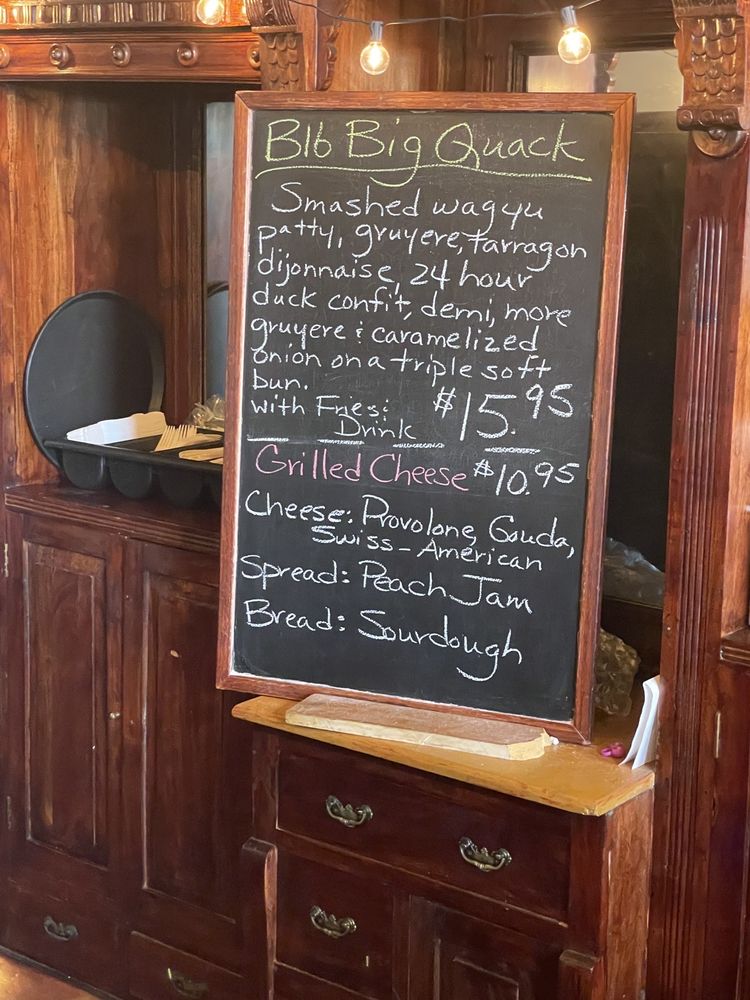 B16 Big Quack
Smashed wagyu
patty, gruyere, tarragon
dijonnaise, 24 hour
duck confit, demi, more
gruyere & caramelized
onion on a triple soft
bun.
with Fries & $15.95
Drink
Grilled Cheese $10.95
Cheese: Provolone, Gouda,
Swiss - American
Spread: Peach Jam
Bread: Sourdough